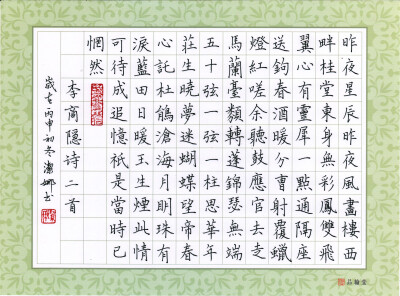 昨夜星辰昨夜風畫樓西
畔桂堂東身無彩鳳雙飛
翼心有靈犀一點通隔座
送鉤春酒暖分曹射覆蠟
燈紅嗟余聽鼓應官去走
馬蘭臺類轉蓬錦瑟無端
五十弦一弦一柱思華年
莊生曉夢迷蝴蝶望帝春
心託杜鵑滄海月明珠有
淚藍田日暖玉生煙此情
可待成追憶祇是當時已
惘然
李商隐诗二首
歲在丙申初冬潔娜书
品翰堂